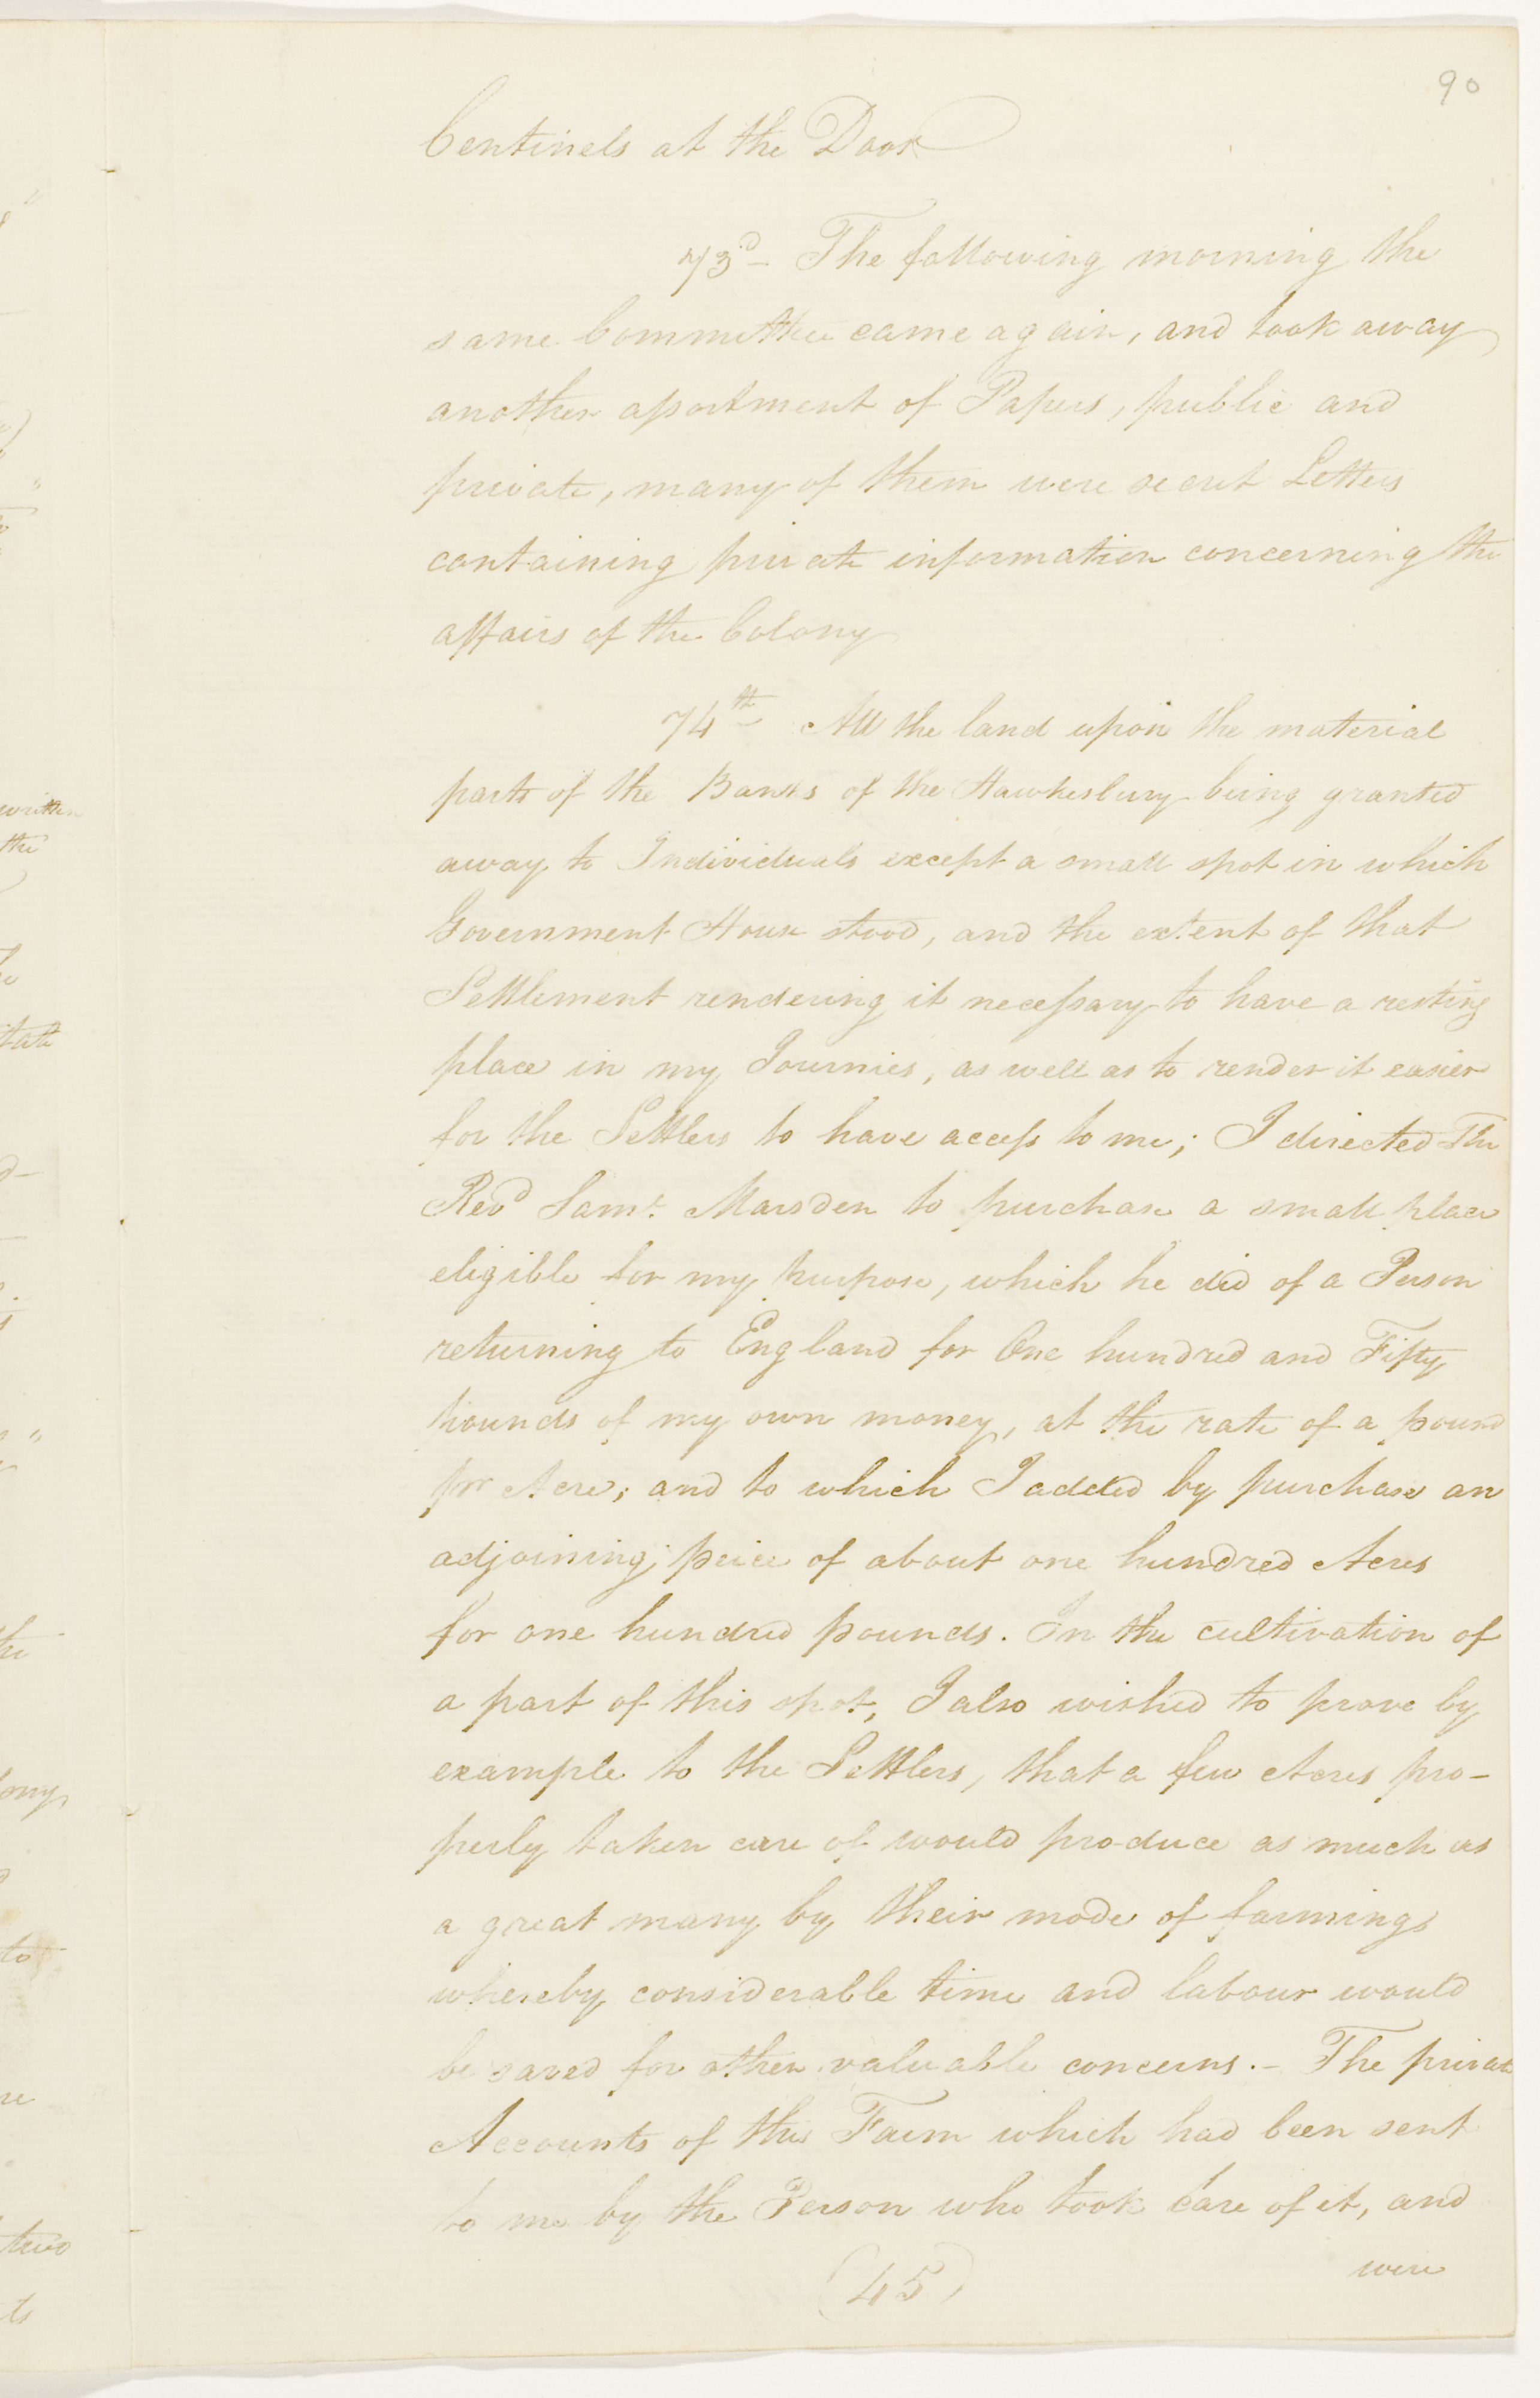 90
Centinels at the Door
73d The following morning the
same Committee came again, and took away
another apartment of Papers, public and
private, many of them were secret Letters
containing private information concerning the
affairs of the Colony
74th All the land upon the material
parts of the Banks of the Hawkesbury being granted
away to Individuals except a small spot in which
Government House stood, and the extent of that
Settlement rendering it necessary to have a resting
place in my Journies, as well as to render it easier
for the Settlers to have access to me; I directed The
Revd Saml. Marsden to purchase a small place
eligible for my purpose, which he did of a Person
returning to England for One hundred and Fifty
pounds of my own money, at the rate of a pound
per Acre; and to which I added by purchase an
adjoining peice of about one hundred Acres
for one hundred pounds. In the cultivation of
a part of this spot, I also wished to prove by
example to the Settlers, that a few Acres pro-
perly taken care of would produce as much as
a great many by their mode of farming
whereby considerable time and labour would
be saved for other valuable concerns.- The private
Accounts of this Farm which had been sent
to me by the Person who took care of it, and
were
(45)
written
the
two